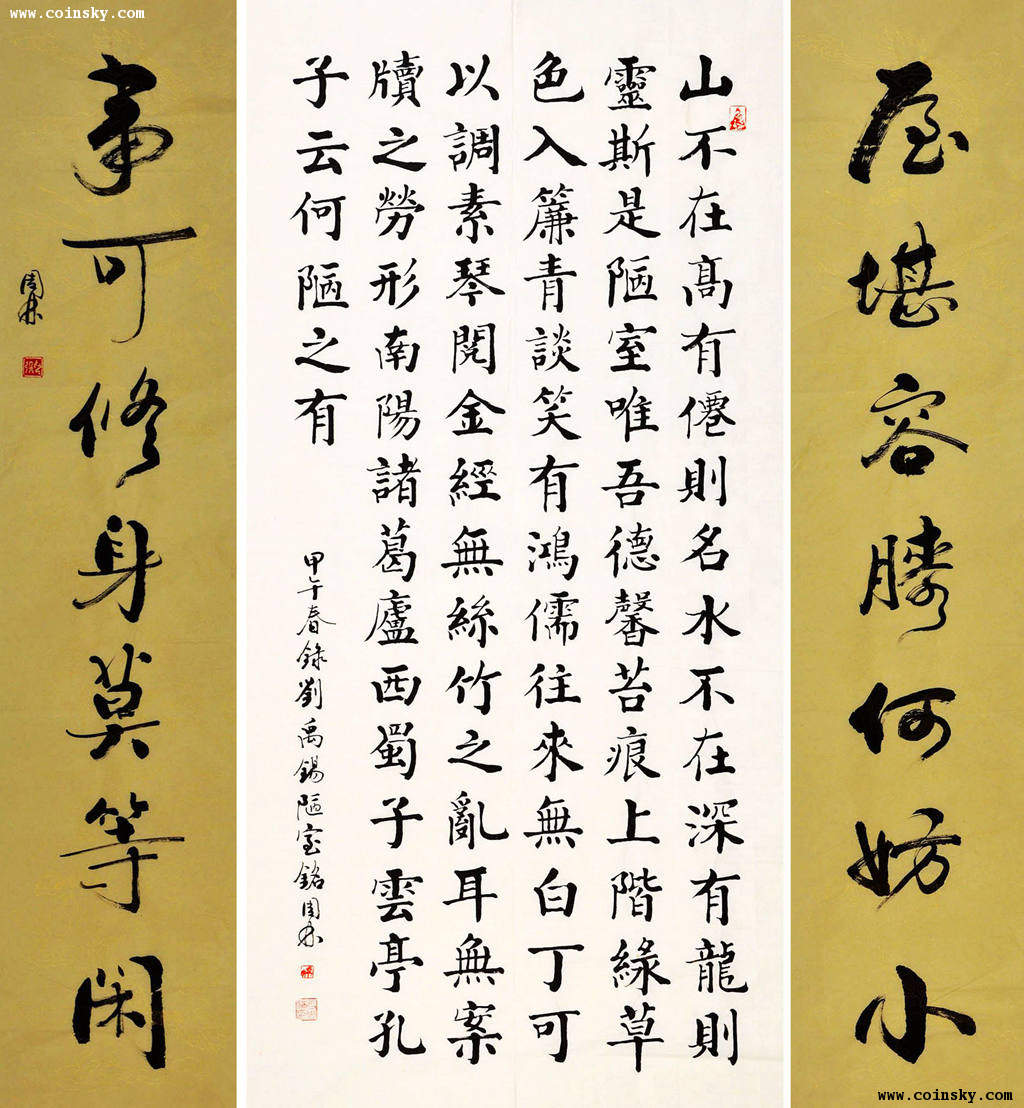 www.coinsky.com
屋堪容膝何妨小
山不在髙有僊則名水不在深有龍則
靈斯是陋室唯吾德馨苔痕上階緑草
色入簾青談笑有鴻儒往來無白丁可
以調素琴閱金經無絲竹之亂耳無案
牘之勞形南陽諸葛廬西蜀子雲亭孔
子云何陋之有
甲午春録劉禹錫陋室銘周
事可修身莫等闲
周
www.coinsky.com